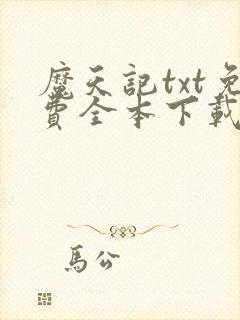 魔天記txt免
費全本下載
馬公